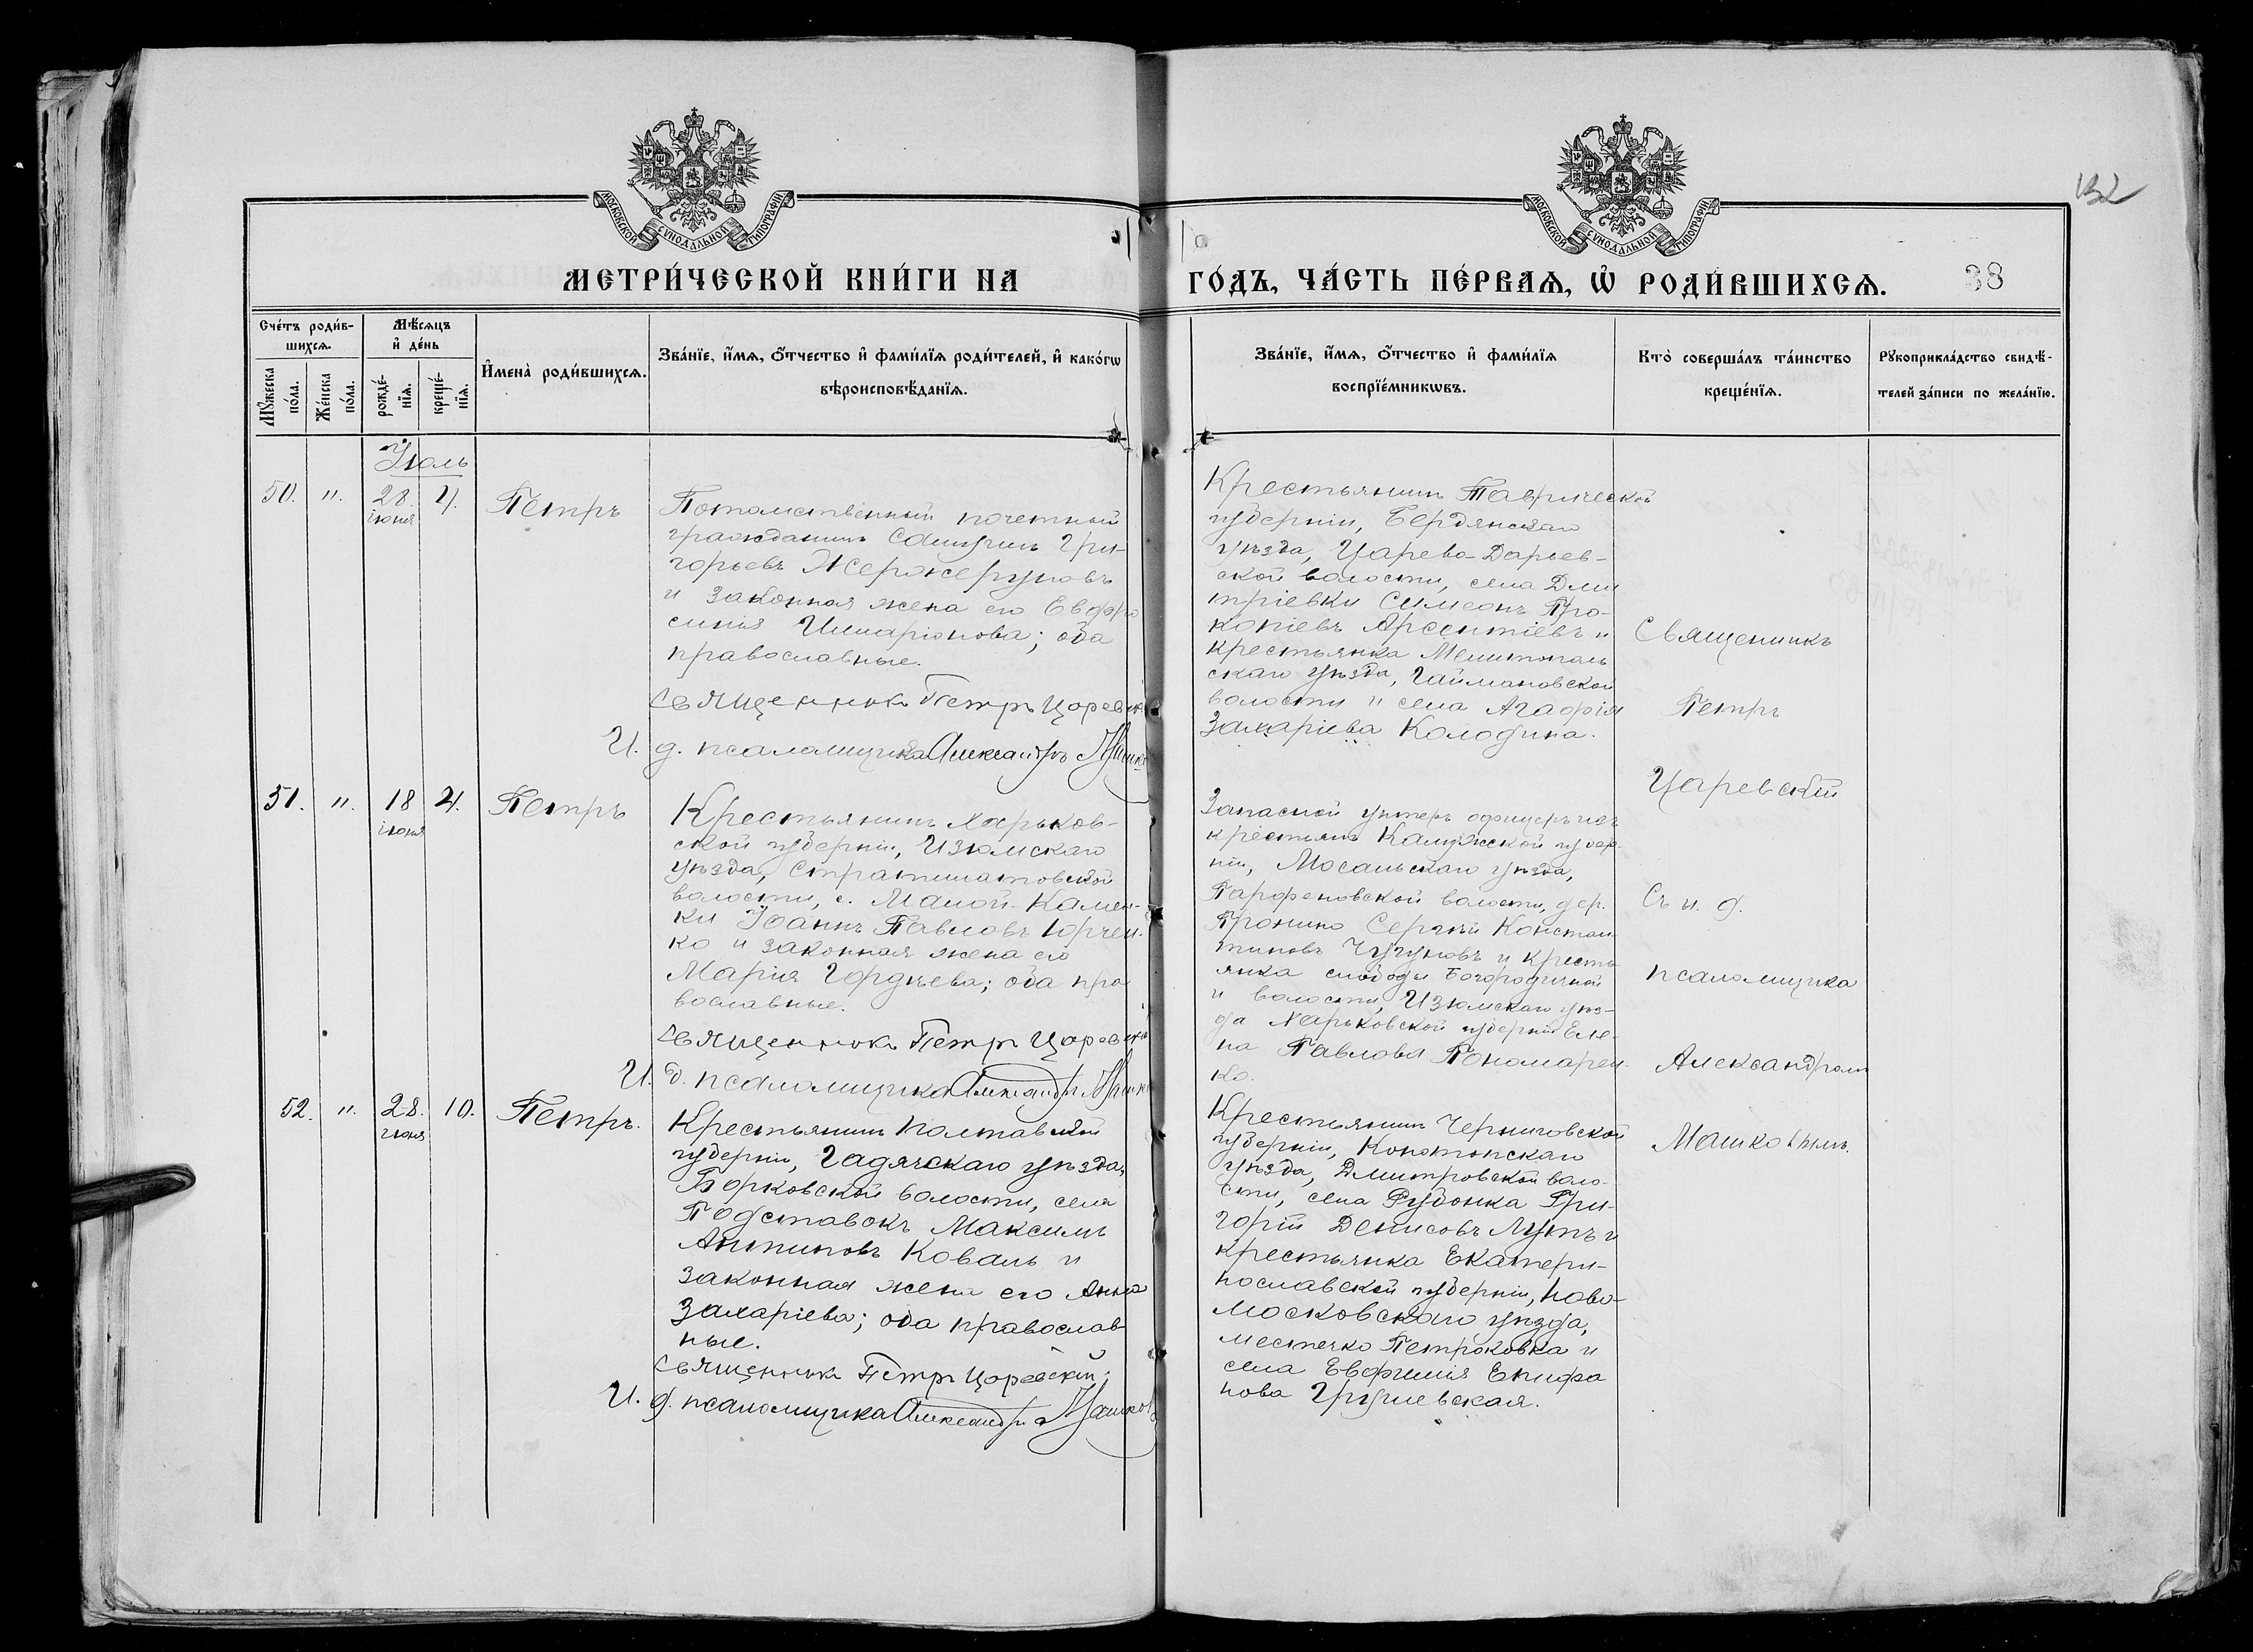 132
МОСКОВСКОЙ СѴНОДАЛЬНОЙ ТИПОГРАФІИ
МОСКОВСКОЙ СѴНОДАЛЬНОЙ ТИПОГРАФІИ
МЕТРИ́ЧЕСКОЙ КНИ́ГИ НА
ГО́ДЪ, ЧА́СТЬ ПЕ́РВАѦ, Ѡ҆ РОДИ́ВШИХСѦ.
38
Сче́тъ роди́в-
шихсѧ.
Мꙋ́жеска
по́ла.
Же́нска
по́ла.
Мѣ́сѧцъ
и҆ де́нь
рожде́-
нїѧ.
креще́-
нїѧ.
И҆мена̀ роди́вшихсѧ.
Зва́нїе, и҆́мѧ, ѻ҆́тчество и҆ фами́лїѧ роди́телей, и҆ како́гѡ
вѣроисповѣ́данїѧ.
Зва́нїе, и҆́мѧ, ѻ҆́тчество и҆ фами́лїѧ
воспрїе́мникѡвъ.
Кто̀ соверша́лъ та́инство
креще́нїѧ.
Рꙋкоприкла́дство свидѣ́-
телей за́писи по жела́нїю.
Іюль
50. ". 28. 4. Петръ
іюня
Потомственный почетный
гражданинъ Григ-
горьевъ Жеребжеруновъ
и законная жена его Евфро
синія Иларіонова; оба
православные.
Священникъ Петръ Царевскі
И. д. псаломщика Александръ Машко
Крестьянинъ Таврической
губерніи, Бердянскаго
уѣзда, Царево-Дарьев-
ской волости, села Дми
тріевки Симеонъ Про-
копіевъ Арсентіевъ и
крестьянка Мелитополь
скаго уѣзда, Гаймановской
волости и села Агафія
Захаріева Колодина.
Священникъ
Петръ
Царевскій
Съ и. д.
псаломщика
Александромъ
Машковымъ.
51. ". 18 4. Петръ
іюня
Крестьянинъ Харьков-
ской губерніи, Изюмскаго
уѣзда, Стратилатовской
волости, с. Малой-Камен-
ки Іоаннъ Павловъ Юрчен-
ко и законная жена его
Марія Гордѣева; оба пра
вославные.
Священникъ Петръ Царевскі
И. д. псаломщика Александръ Машко
Запасной унтеръ офицеръ изъ
крестьянъ Калужской губер
ніи, Мосальскаго уѣзда,
Парфеновской волости, дер.
Пронино Сергѣй Констан
тиновъ Чугуновъ и кресть
янка слободы Богородичной
и волости, Изюмскаго уѣз-
да Харьковской губерніи Еле-
на Павлова Пономарен-
ко.
52. ". 28. 10. Петръ.
іюня
Крестьянинъ Полтавской
губерніи, Гадячскаго уѣзда,
Борковской волости, села
Подставокъ Максимъ
Антиповъ Коваль и
законная жена его Анна
Захаріева; оба православ
ные.
Священникъ Петръ Царевскій;
И. д. псаломщика Александръ Машковъ
Крестьянинъ Черниговской
губерніи, Конотопскаго
уѣзда, Дмитровской воло-
сти, села Рубонка Гри-
горій Денисовъ Лутъ и
крестьянка Екатери-
нославской губерніи, Ново-
московскаго уѣзда,
местечко Петроковка и
села Евфимія Епифа
нова Грушевская.